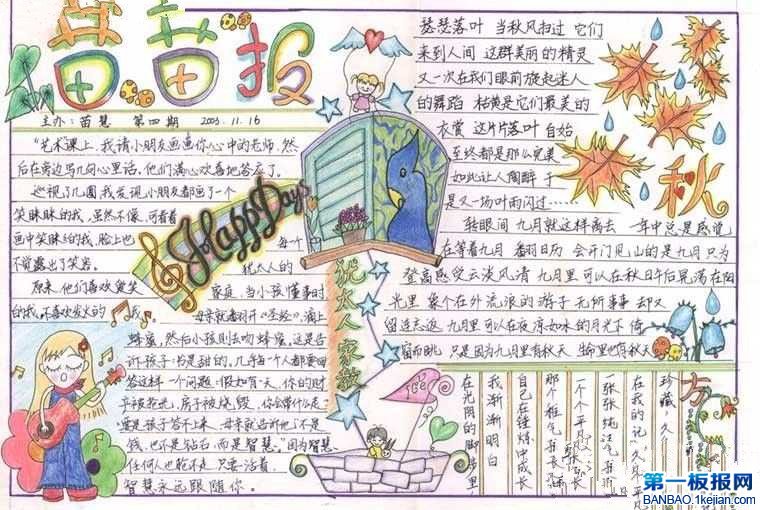 苗苗报
主办：苗慧 第四期 2003.11.16
"艺术"课上,我请小朋友画画你心中的老师,然
后在旁边写几句心里话,他们满心欢喜地答应了。
巡视了几圈,我发现小朋友都画了一个
笑眯眯的我,虽然不像,可看着
画中笑眯眯的我,脸上也
不觉露出了笑容。
原来,他们喜欢爱笑
的我,不喜欢发火的我。
Happy Days
犹太人家教
每个
犹太人的
家庭,当小孩懂事时
母亲就翻开《圣经》,滴上
蜂蜜,然后小孩则去吻蜂蜜。这是告
诉孩子:书是甜的。几乎每个人都要回
答这样一个问题:假如有一天,你的财
产被抢光,房子被烧毁,你会带什么走?
要是孩子答不上来,母亲就告诉他:不是
钱,也不是钻石,而是智慧。"因为智慧
任何人也抢不走,只要活着,
智慧永远跟随你。
瑟瑟落叶 当秋风扫过 它们
来到人间 这群美丽的精灵
又一次在我们眼前旋起迷人
的舞蹈 枯黄是它们最美的
衣赏 这片片落叶 自始
至终都是那么完美
如此让人陶醉于
是又一场叶雨闪过……
秋
转眼间 九月就这样离去 一年中总是感觉
在等着九月 翻日历 会开门见山的是九月 只为
登高感受云淡风清 九月里 可以在秋日午后晃荡在阳
光里 象个在外流浪的游子 无所事事 却又
留连忘返 九月里可以在夜凉如水的月光下 倚
窗而眺 只是因为九月里有秋天 生命里也有秋天
方
珍藏,久久
在我的记
一张张纯
一个个平
那个稚气
自己在锤炼中成长
我渐渐明白
在光阴的脚步里
第一板报网
BANBAO.1kejian.com